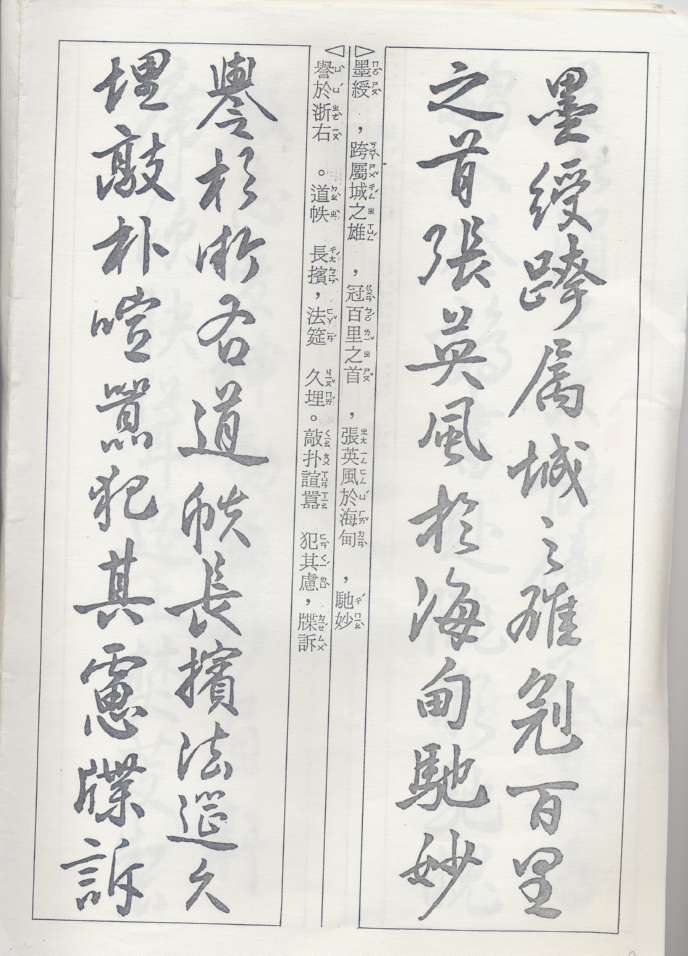 墨綬跨属城之雄冠百里
之首張英風於海甸馳妙
墨綬，跨屬城之雄，冠百里之首，張英風於海甸，馳妙
譽於浙右。道帙長擯，法筵久埋。敲扑諠囂犯其慮，牒訴
譽於浙右道帙長擯法筵久
埋敲朴喧囂犯其慮牒訴